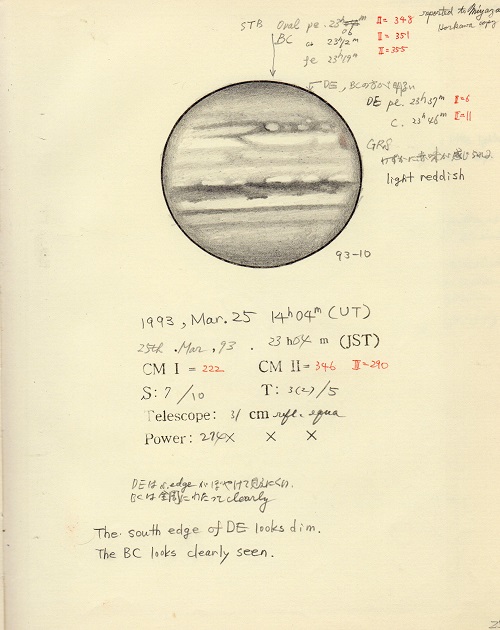 STB Oval pe. 23h 06m II = 348 reported to Miyazaki
BC c 23h12m II = 351
fe 23h19m II = 355
DE, BCの方が明るい
DE pe. 23h37m II=6
c. 23h46m II=11
GRS
わずかに赤味が感じられる
light reddish
93-10
1993, Mar. 25 14h04m (UT)
25th. Mar, 93. 23h04m (JST)
CM I = 222 CM II = 346 III=290
S: 7/10 T: 3(2)/5
Telescope: 31 cm refl. equa
Power: 274X X X
DEはs.edgeがぼやけて見えにくい.
BCは全周にわたってclearly
The south edge of DE looks dim.
The BC looks clearly seen.